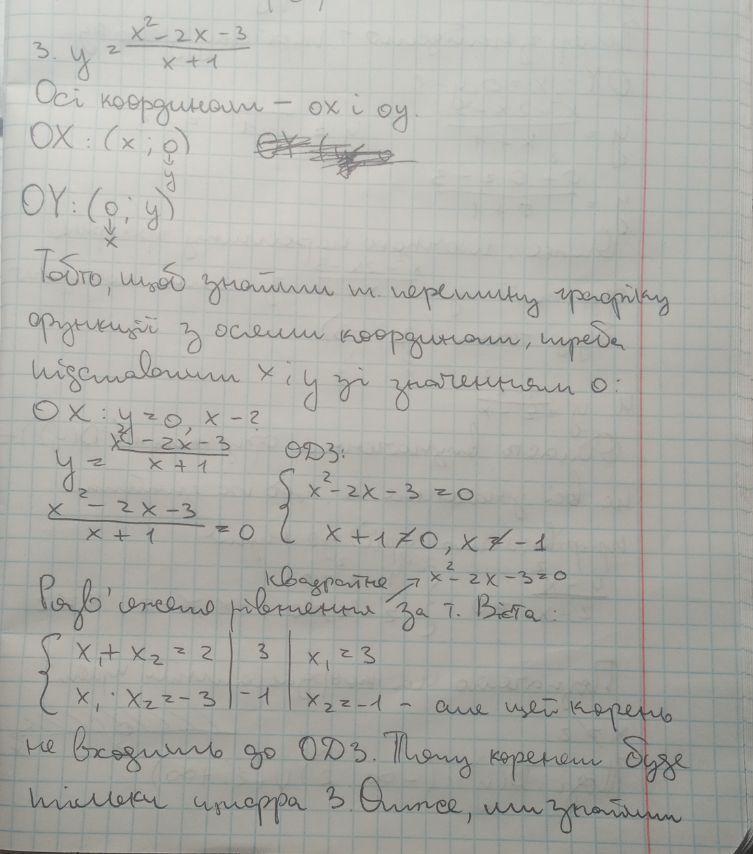 3. y = x² - 2x - 3 / x + 1
Осі координат – ox і oy.
OX: (x ; 0)
y
OY: (0; y)
x
Тобто, щоб знайти т. перетину графіку
функції з осями координат, треба
підставити x і y зі значенням 0:
OX: y = 0, x - ?
y = x² - 2x - 3 / x + 1
ОДЗ:
x² - 2x - 3 / x + 1 = 0
{ x² - 2x - 3 = 0
x + 1 ≠ 0, x ≠ -1
квадратне → x² - 2x - 3 = 0
Розв'яжемо рівняння за т. Вієта:
{ x₁ + x₂ = 2 | 3 | x₁ = 3
x₁ · x₂ = -3 | -1 | x₂ = -1 - але цей корень
не входить до ОДЗ. Тому коренем буде
тільки цифра 3. Отже, ми знайшли